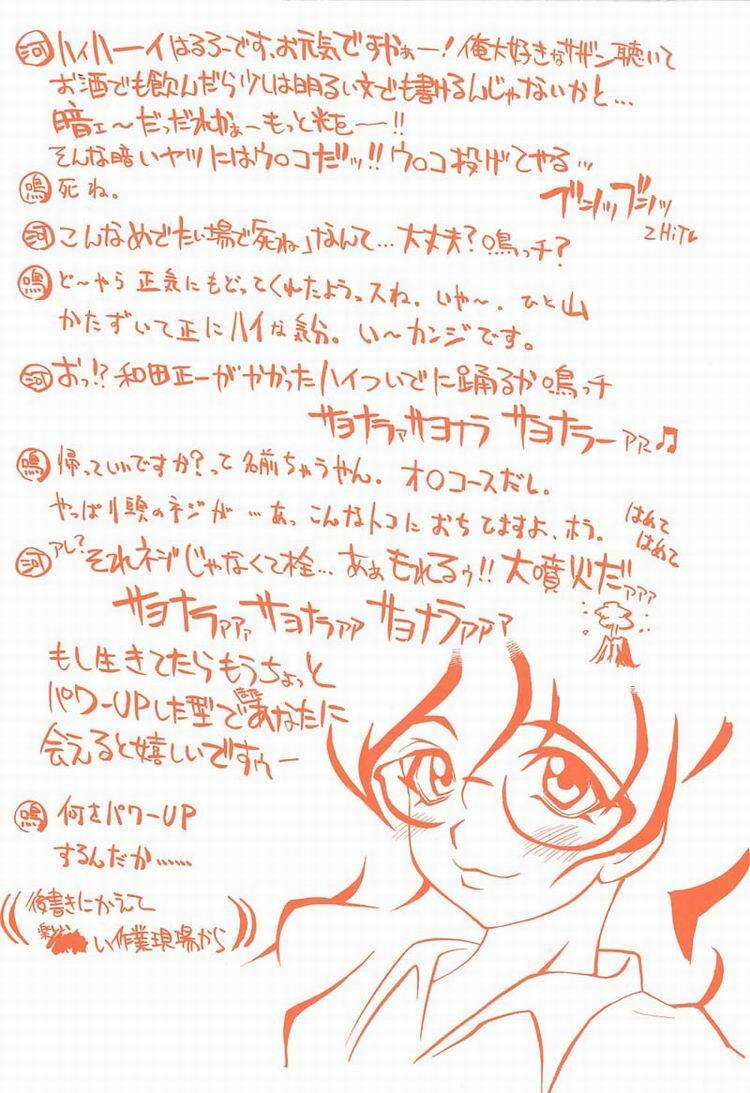 河 ハイハーイはるろーです、お元気ですかぁー！俺大好きなサザン聴いて
お酒でも飲んだら少しは明るい文でも書けるんじゃないかと…
暗ェ〜だっだれかぁーもっと光を──!!
そんな暗いヤツにはウ○コだッ!!ウ○コ投げてやる…
ブシッブシッ
2HiT
鳴 死ね。
河 こんなめでたい場で「死ね」なんて…大丈夫?鳴っチ?
鳴 ど〜やら正気にもどってくれたようっスね。いや〜、ひと山
かたずいて正にハイな気分。い〜カンジです。
河 おっ!?和田正一がかかったハイついでに踊るか鳴っチ
サヨナラァサヨナラ サヨナラーァァ♫
鳴 帰っていいですか?って名前ちゃうやん。オ○コースだし。
やっぱり頭のネジが…あっこんなトコにおちてますよ、ホラ。
はめて
はめて
河 アレ?それネジじゃなくて栓…あぁもれるぅ!!大噴火だァァァ
サヨナラァァァサヨナラァァァサヨナラァァァ
もし生きてたらもうちょっと
パワーUPした型であなたに
会えると嬉しいですぅー
鳴 何をパワーUP
するんだか……
後書きにかえて
い作業現場から